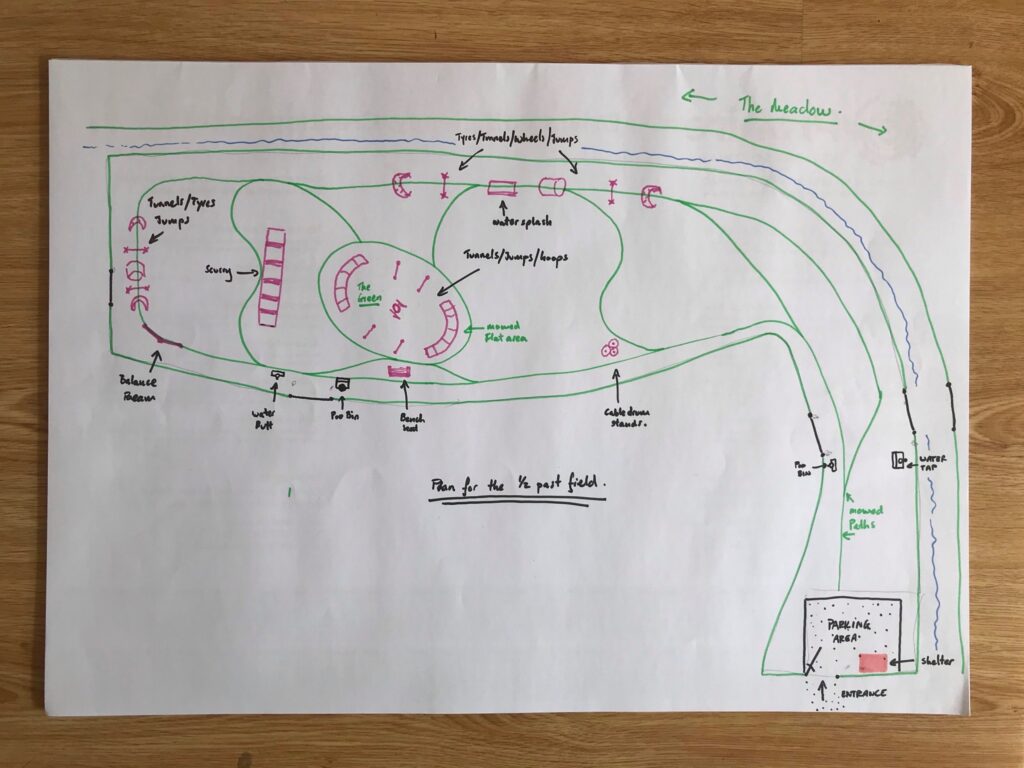 The Meadow.
Tyres/Tunnels/Wheels/Jumps
Tunnels/Tyres
Jumps
water splash
Scurry
Tunnels/Jumps/Hoops
The
Green
mowed
Flat area
Balance
Beam
Water
Butt
Poo Bin
Bench
Cable drum
stands.
Poo
Bin
WATER
TAP
Plan for the 1/2 past field.
mowed
Paths
PARKING
AREA.
Shelter
ENTRANCE